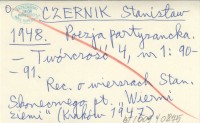 CZERNIK Stanisław
1948. Poezja partyzancka.
– Twórczość 4, nr 1: 90-
– 91.
Rec. o wierszach Stan.
Skonecznego pt. „Wierni
ziemi” (Kraków 1947)